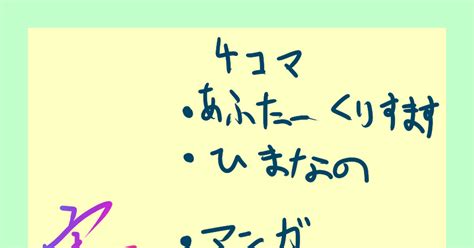 4コマ
・あふたーくりすます
・ひまなの
・マンガ